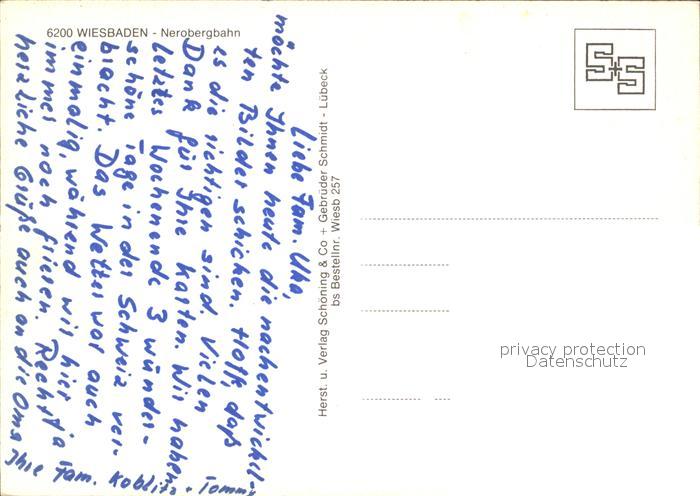 6200 WIESBADEN - Nerobergbahn
Liebe Fam. Uho,
möchte Ihnen heute die nachentwickel-
ten Bilder schicken. Hoff, daß
es die richtigen sind. Vielen
Dank für Ihre Karten. Wir haben
letztes Wochenende 3 wunder-
schöne Tage in der Schweiz ver-
bracht. Das Wetter war auch
einmalig, während wir hier
immer noch frieren. Recht
herzliche Grüße auch an die Oma
Ihre Fam. Koblitz + Tommy
Herst. u. Verlag Schöning & Co + Gebrüder Schmidt - Lübeck
bs Bestellnr. Wiesb 257
S+S
privacy protection
Datenschutz